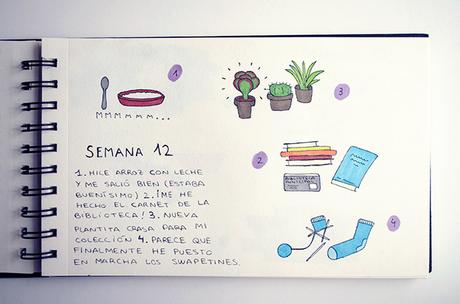 1
MMMMMM...
3
SEMANA 12
2
BIBLIOTECA
MUNICIPAL
1. HICE ARROZ CON LECHE
Y ME SALIÓ BIEN (ESTABA
BUENÍSIMO) 2. ¡ME HE
HECHO EL CARNET DE LA
BIBLIOTECA! 3. NUEVA
PLANTITA CRASA PARA MI
COLECCIÓN 4. PARECE QUE
FINALMENTE HE PUESTO
EN MARCHA LOS SWAPETINES.
4